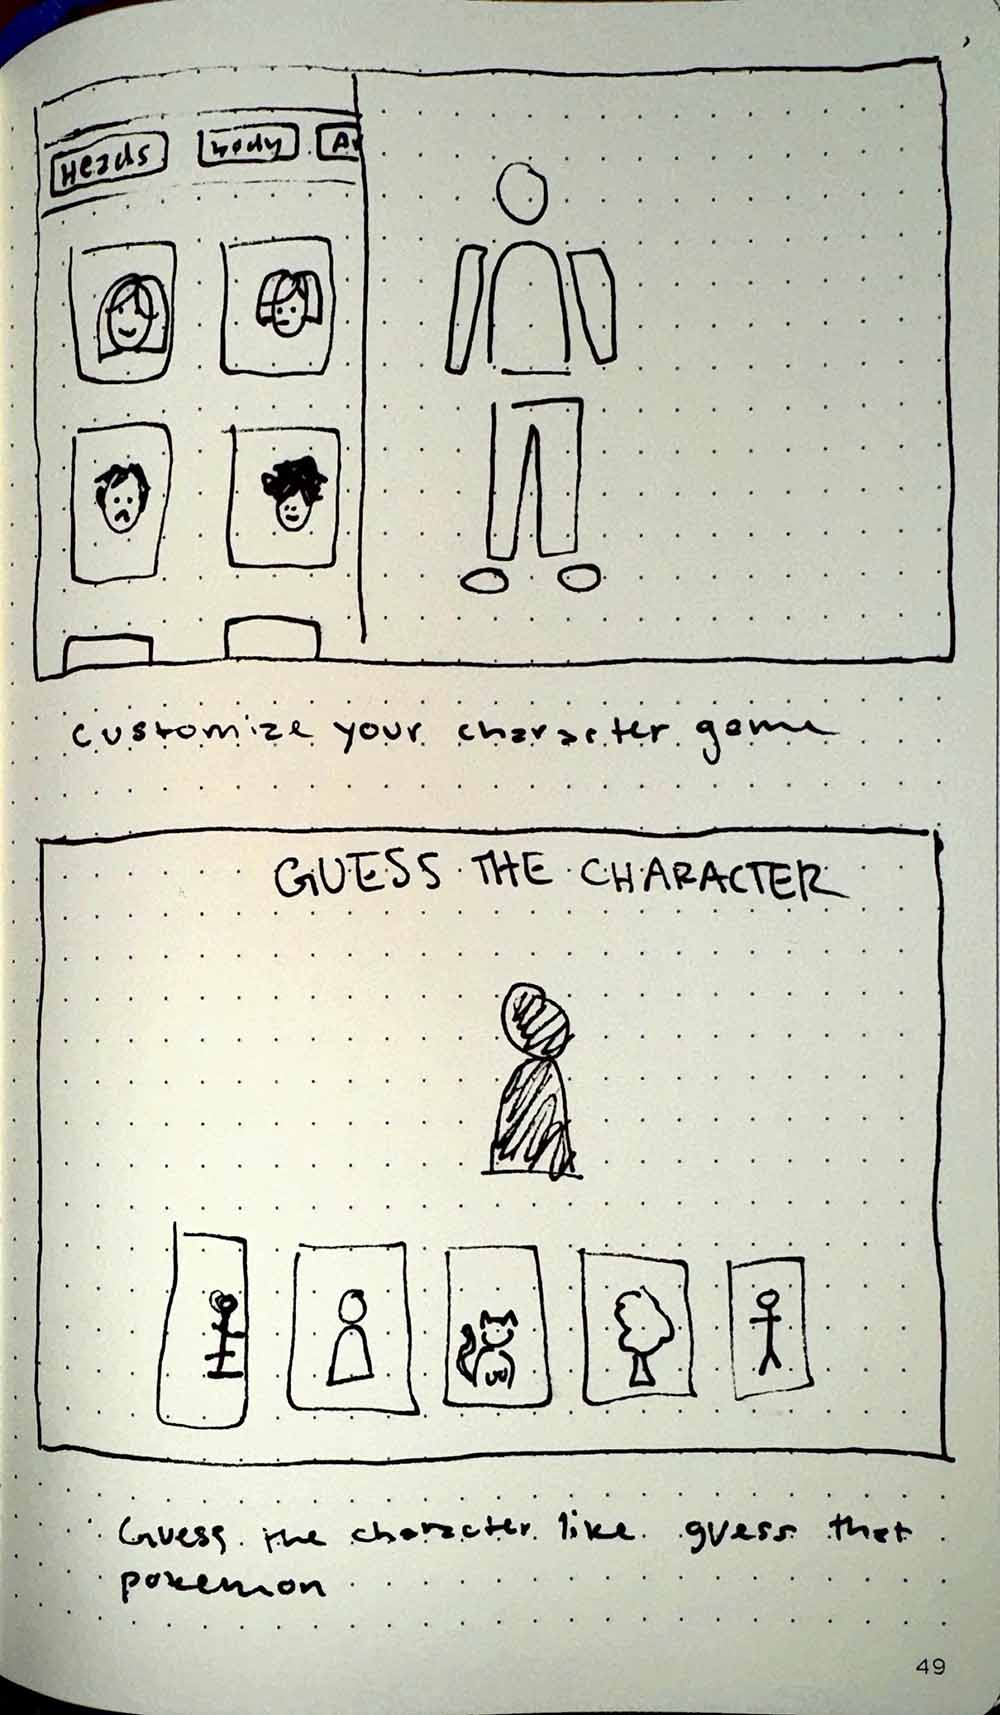 Heads body A
customize your character game
GUESS THE CHARACTER
Guess the character like guess that
pokemon
49